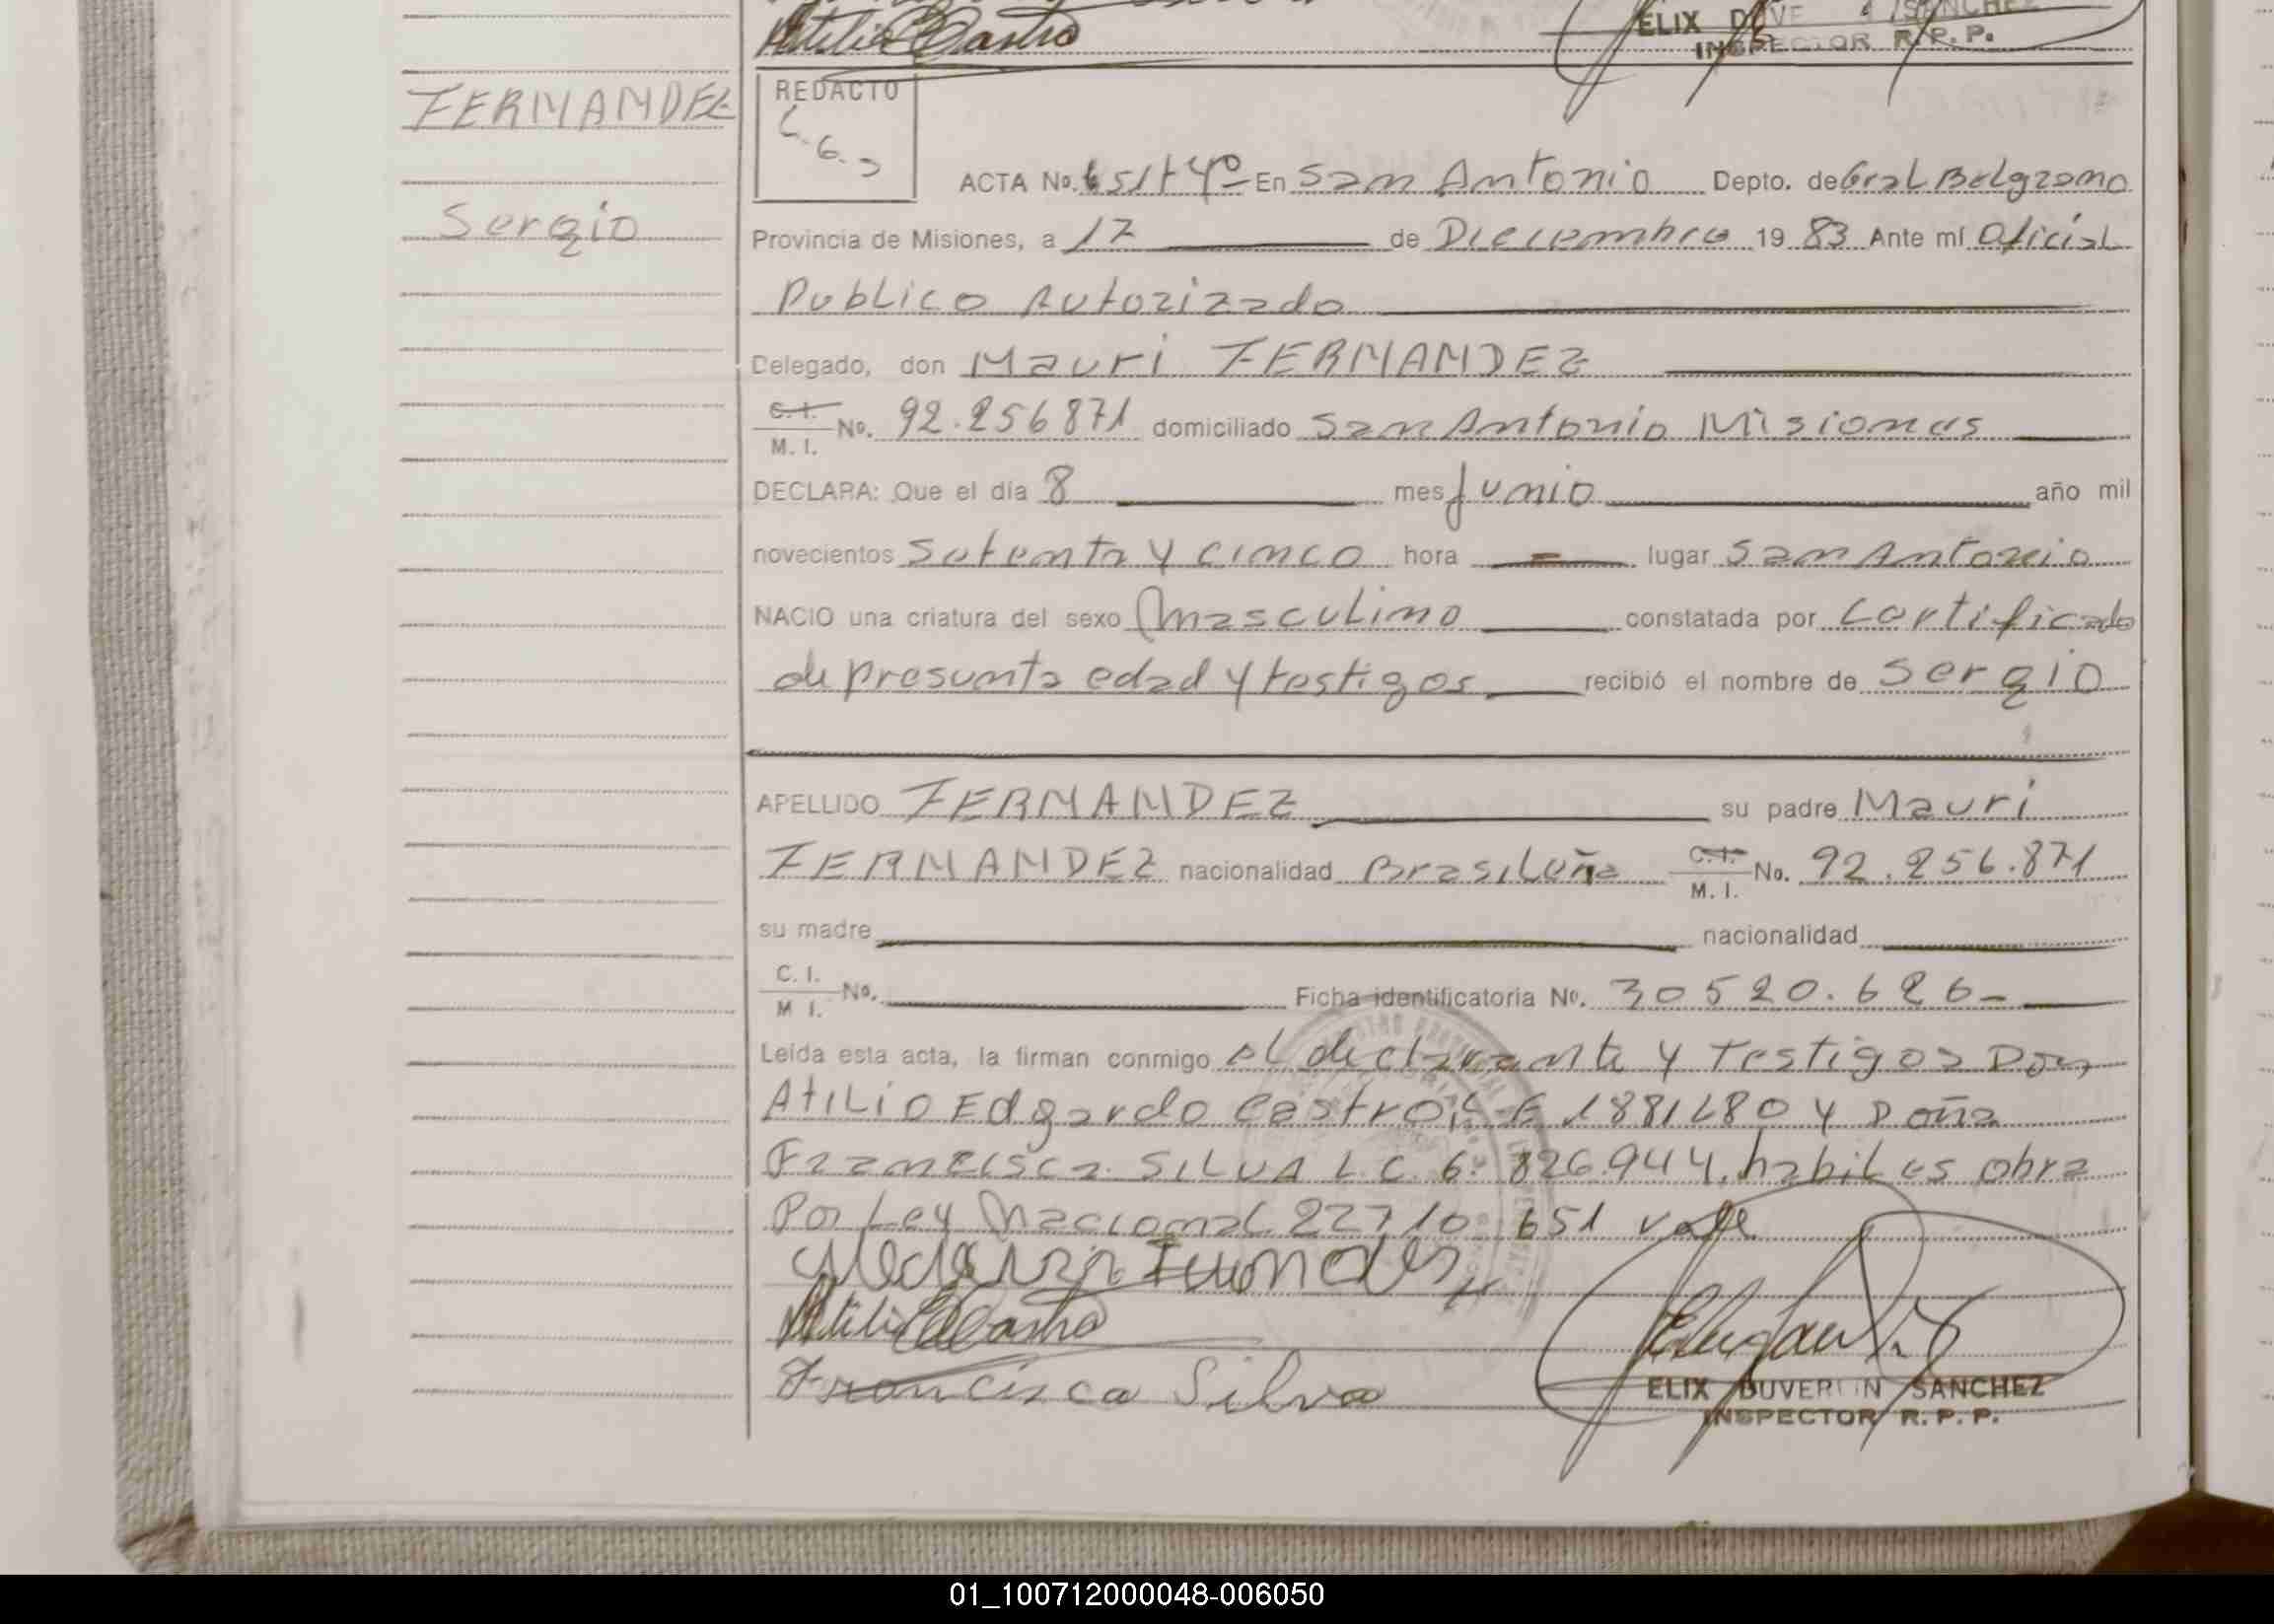 Atilio E Castro
ELIX DUVE SANCHEZ
INSPECTOR R. P. P.
FERNANDEZ
Sergio
REDACTO
ACTA No. 651 t 4º En San Antonio Depto. de Gral Belgrano
Provincia de Misiones, a 17 de Diciembre 19 83 Ante mí Oficial
Publico Autorizado
Delegado, don Mauri FERNANDEZ
C. I. / M. I. No. 92.256871 domiciliado San Antonio Misiones
DECLARA: Que el día 8 mes Junio año mil
novecientos Setenta y cinco hora lugar San Antonio
NACIO una criatura del sexo Masculino constatada por Certificado
de presunta edad y testigos recibió el nombre de Sergio
APELLIDO FERNANDEZ su padre Mauri
FERNANDEZ nacionalidad Brasileña C. I. / M. I. No. 92.256.871
su madre nacionalidad
C. I. / M I. No. Ficha identificatoria No. 30520.626-
Leída esta acta, la firman conmigo el declarante y Testigos Don
Atilio Edgardo Castro L E 1881280 y Doña
Francisca SILVA L C 6.826.944, habiles obra
Por Ley Nacional 22710 651 vale
Atilio E Castro
Francisca Silva
ELIX DUVERLIN SANCHEZ
INSPECTOR R. P. P.
01_100712000048-006050